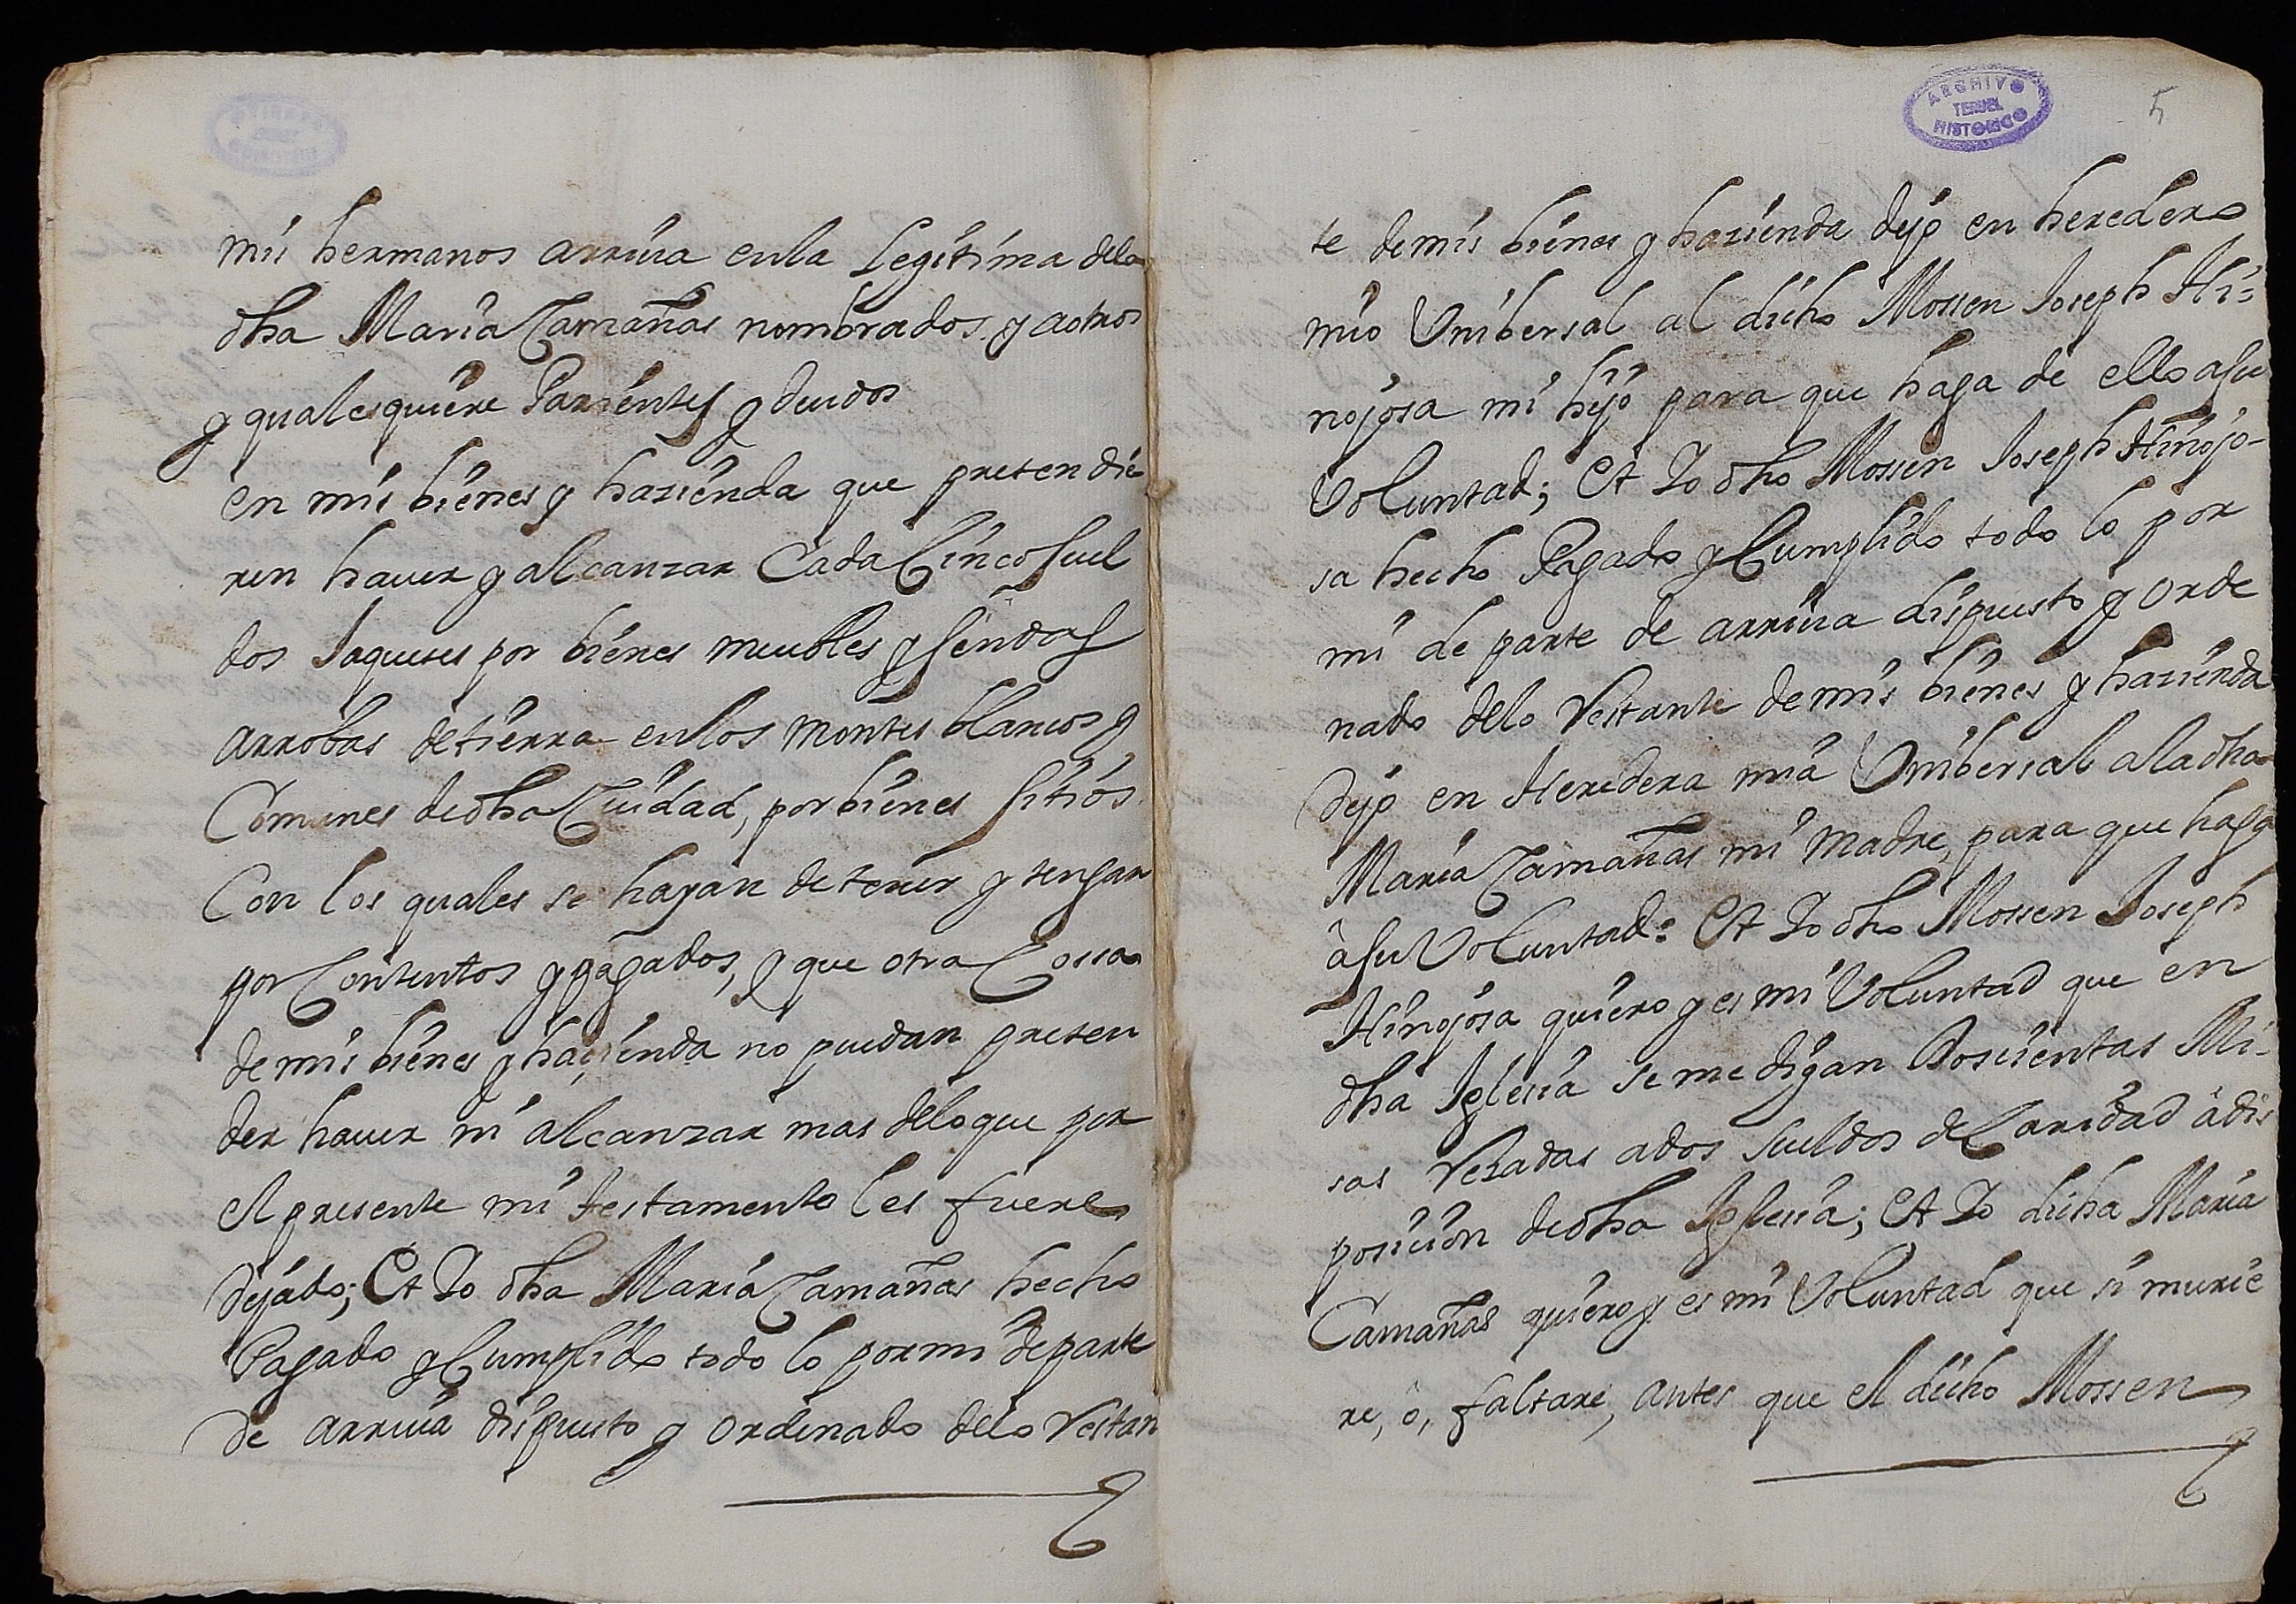 mis hermanos arriua enla Legitima dela
dha Maria Camañas nombrados, y aotros
y qualesquiere Parientes y deudos
en mis bienes y hazienda que pretendie
ren hauer y alcanzar Cada Cinco Suel
dos Jaqueses por bienes muebles y Sendas
arrobas de tierra enlos montes blancos y
Comunes de dha Ciudad, por bienes Sitios
Con los quales se hayan de tener y tengan
por Contentos y pagados, y que otra Cossa
de mis bienes y hazienda no puedan preten
der hauer ni alcanzar mas delo que por
el presente mi testamento les fuere
dejado; Et Yo dha Maria Camañas hecho
Pagado y Cumplido todo lo por mi de parte
de arriua dispuesto y ordenado delo restan
ARCHIVO
TERUEL
HISTORICO
5
te de mis bienes y hazienda dejo en heredero
mio Unibersal al dicho Mossen Joseph Hi=
nojosa mi hijo para que haga de ello asu
Voluntad; Et Yo dho Mossen Joseph Hinojo-
sa hecho Pagado y Cumplido todo lo por
mi de parte de arriua dispuesto y orde
nado delo restante de mis bienes y hazienda
dejo en Heredera mia Unibersal ala dha
Maria Camañas mi Madre, para que haga
à su Voluntad: Et Yo dho Mossen Joseph
Hinojosa quiero y es mi Voluntad que en
dha Iglesia se me digan Doscientas Mi-
sas rezadas ados sueldos de Caridad à dis
posicion de dha Iglesia; Et Yo dicha Maria
Camañas quiero y es mi Voluntad que si murie
re, ô, faltare, antes que el dicho Mossen